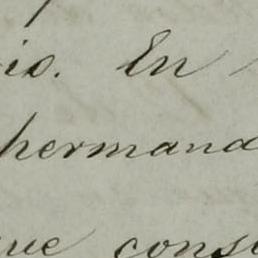 io. En
hermana
que cons